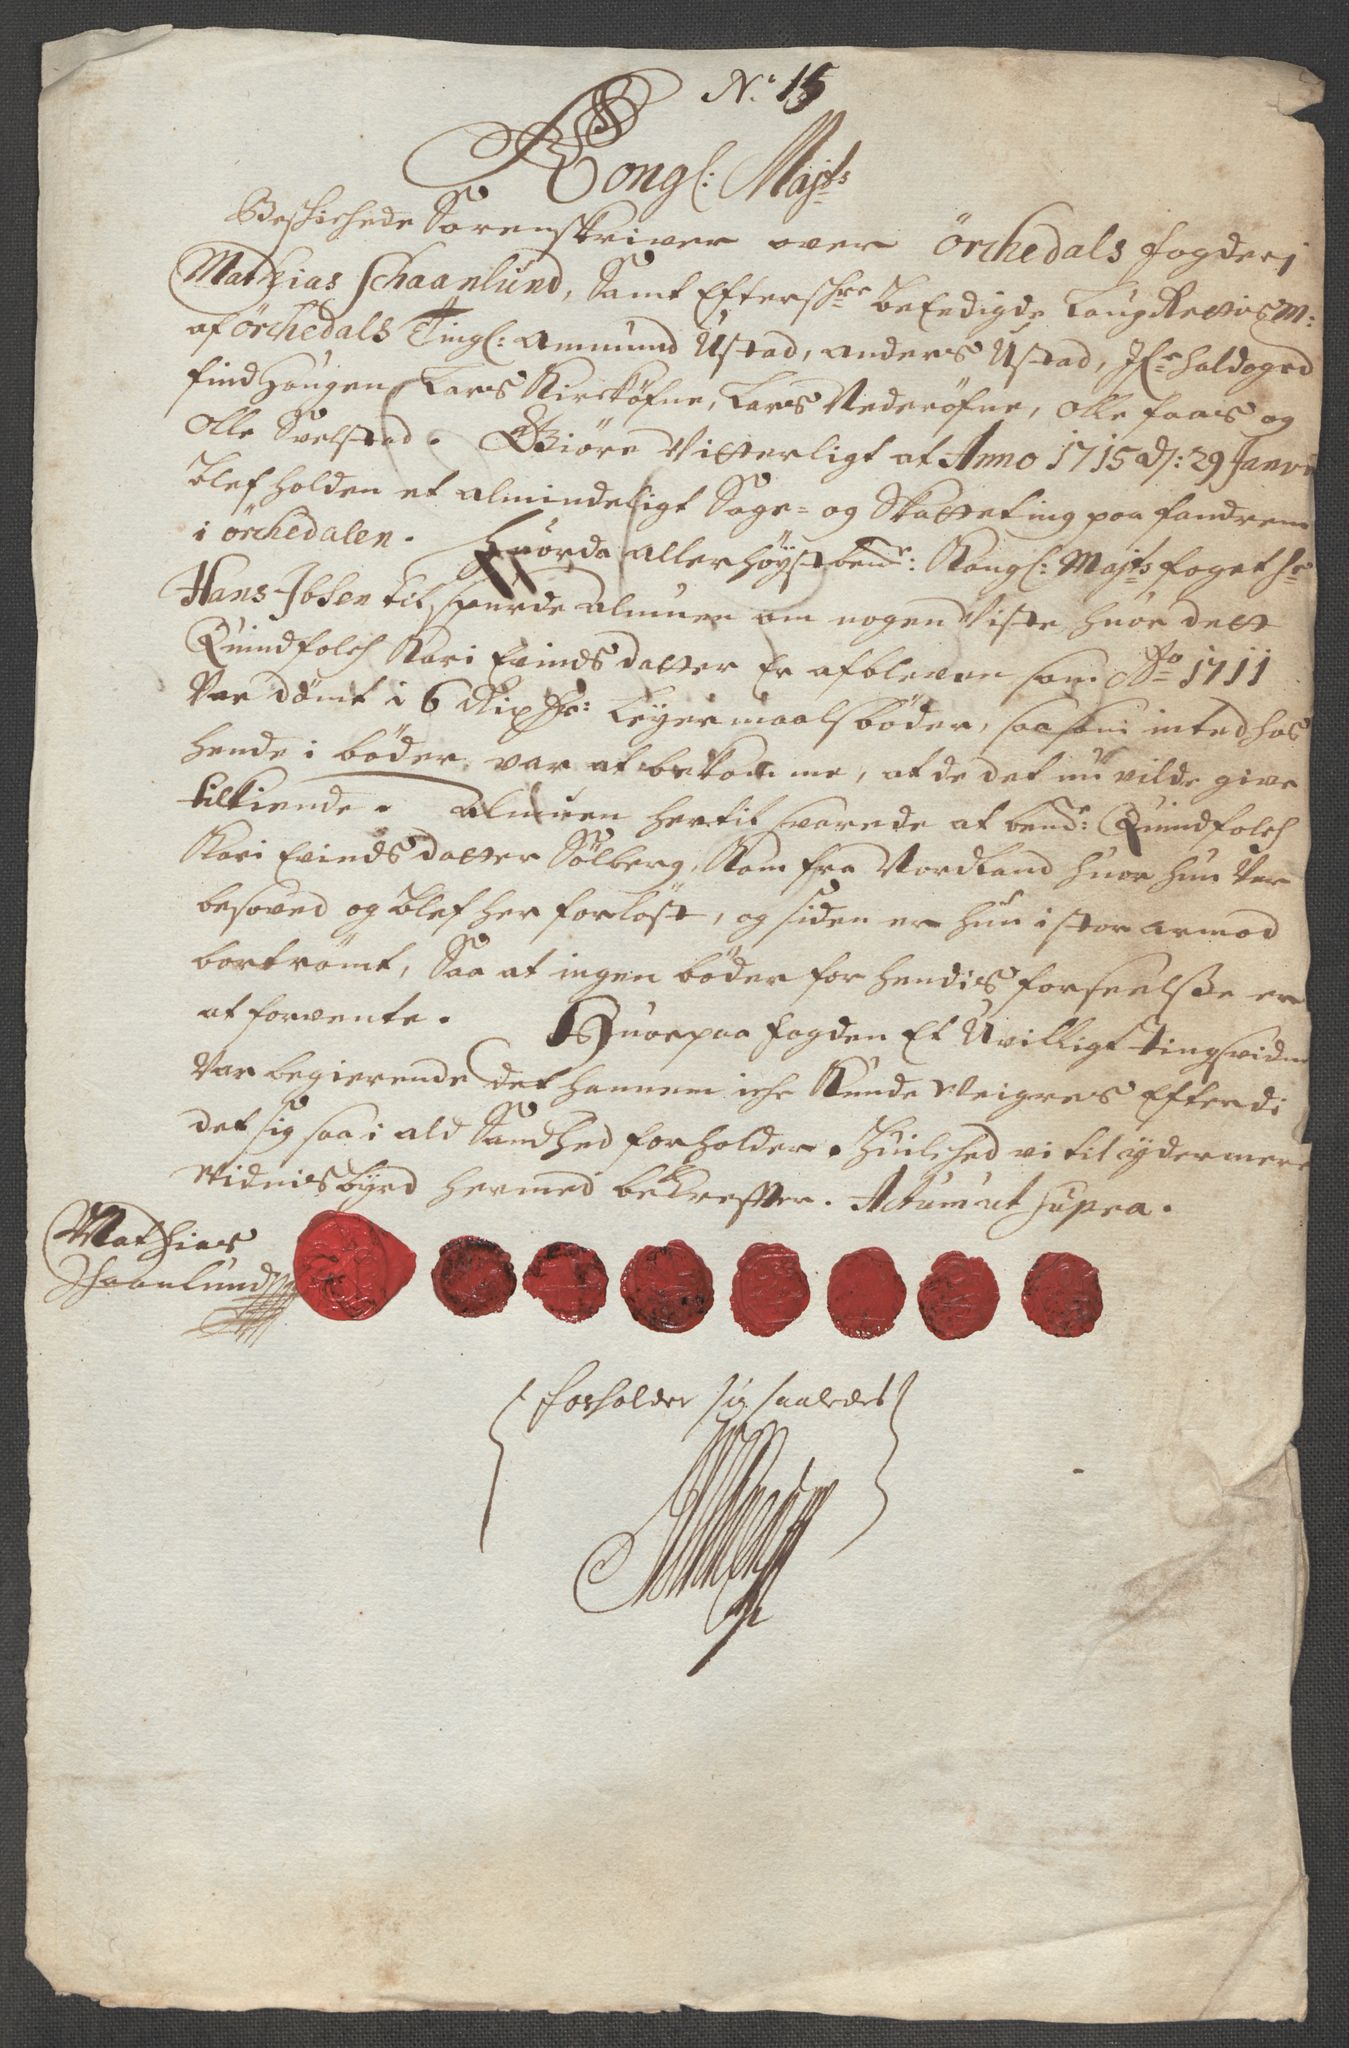 No 15
Kongl: Majts
Beschichede Sorenskriver over Örchedals fogderi
Mathias Schaanlund, Samt Efterschrne beEedigde LaugRettisM:
af örchedals Tingl: Ammund Ustad, anders Ustad, haldogrd
find Haugen, Lars Kirchöfne, Lars Nederöfne, olle faas og
olle Svelstad. Giöre Vitterligt at Anno 1715 d: 29 Janri
blef holden et almindeligt Sage- og Skatteting paa fandrem
i örchedalen. Huorda allerhöystbemte: Kongl: Majts foget hr
Hans Ibsen tilspurde almuen om nogen Viste huor dett
Quindfolch Kari Evindsdatter Er afbleven som Ao 1711
Var dömt i 6 Rixdr: Leyermaalsböder, saasom inted hos
hende i böder, var at bekomme, at de det nu vilde give
tilkiende. Almuen hertil svarede at bemte: Quindfolch
Kari Evindsdatter Sölberg, Kom fra Nordland huor hun Var
besoved og blef her forlöst, og siden er hun i stor armod
bortrömt, Saa at ingen böder for hendis forseelsse er
at forvente. Huorpaa fogden Et Uvilligt tingsvidne
Var begierende det hannem iche Kunde Veigres Efterdi
det sig saa i ald Sandhed forholder. Huilched vi til ydermere
Vidnisbyrd hermed bekreffter. Actum ut supra.
Mathias
Schaanlund
forholder sig saaledes